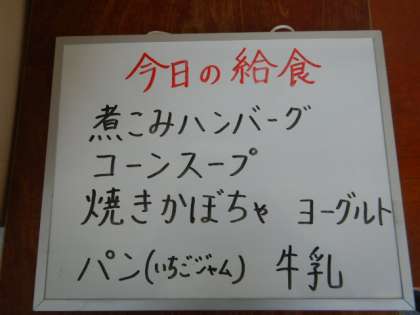 今日の給食
煮こみハンバーグ
コーンスープ
焼きかぼちゃ ヨーグルト
パン(いちごジャム) 牛乳